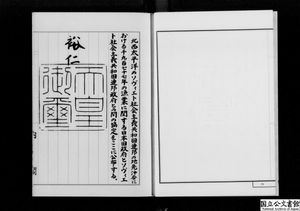 北西太平洋のソヴィエト社会主義共和国連邦の地先沖合に
おける千九百七十七年の漁業に関する日本国政府とソヴィエ
ト社会主義共和国連邦政府との間の協定をここに公布する。
裕仁
天皇
御璽
国立公文書館
National Archives of Japan